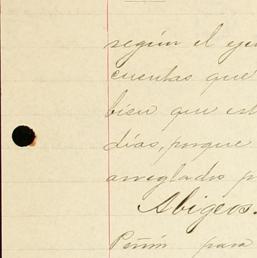 según el eje
cuentas que
bien que est
días, porque
arreglados p
Abigeos.
Piñón para